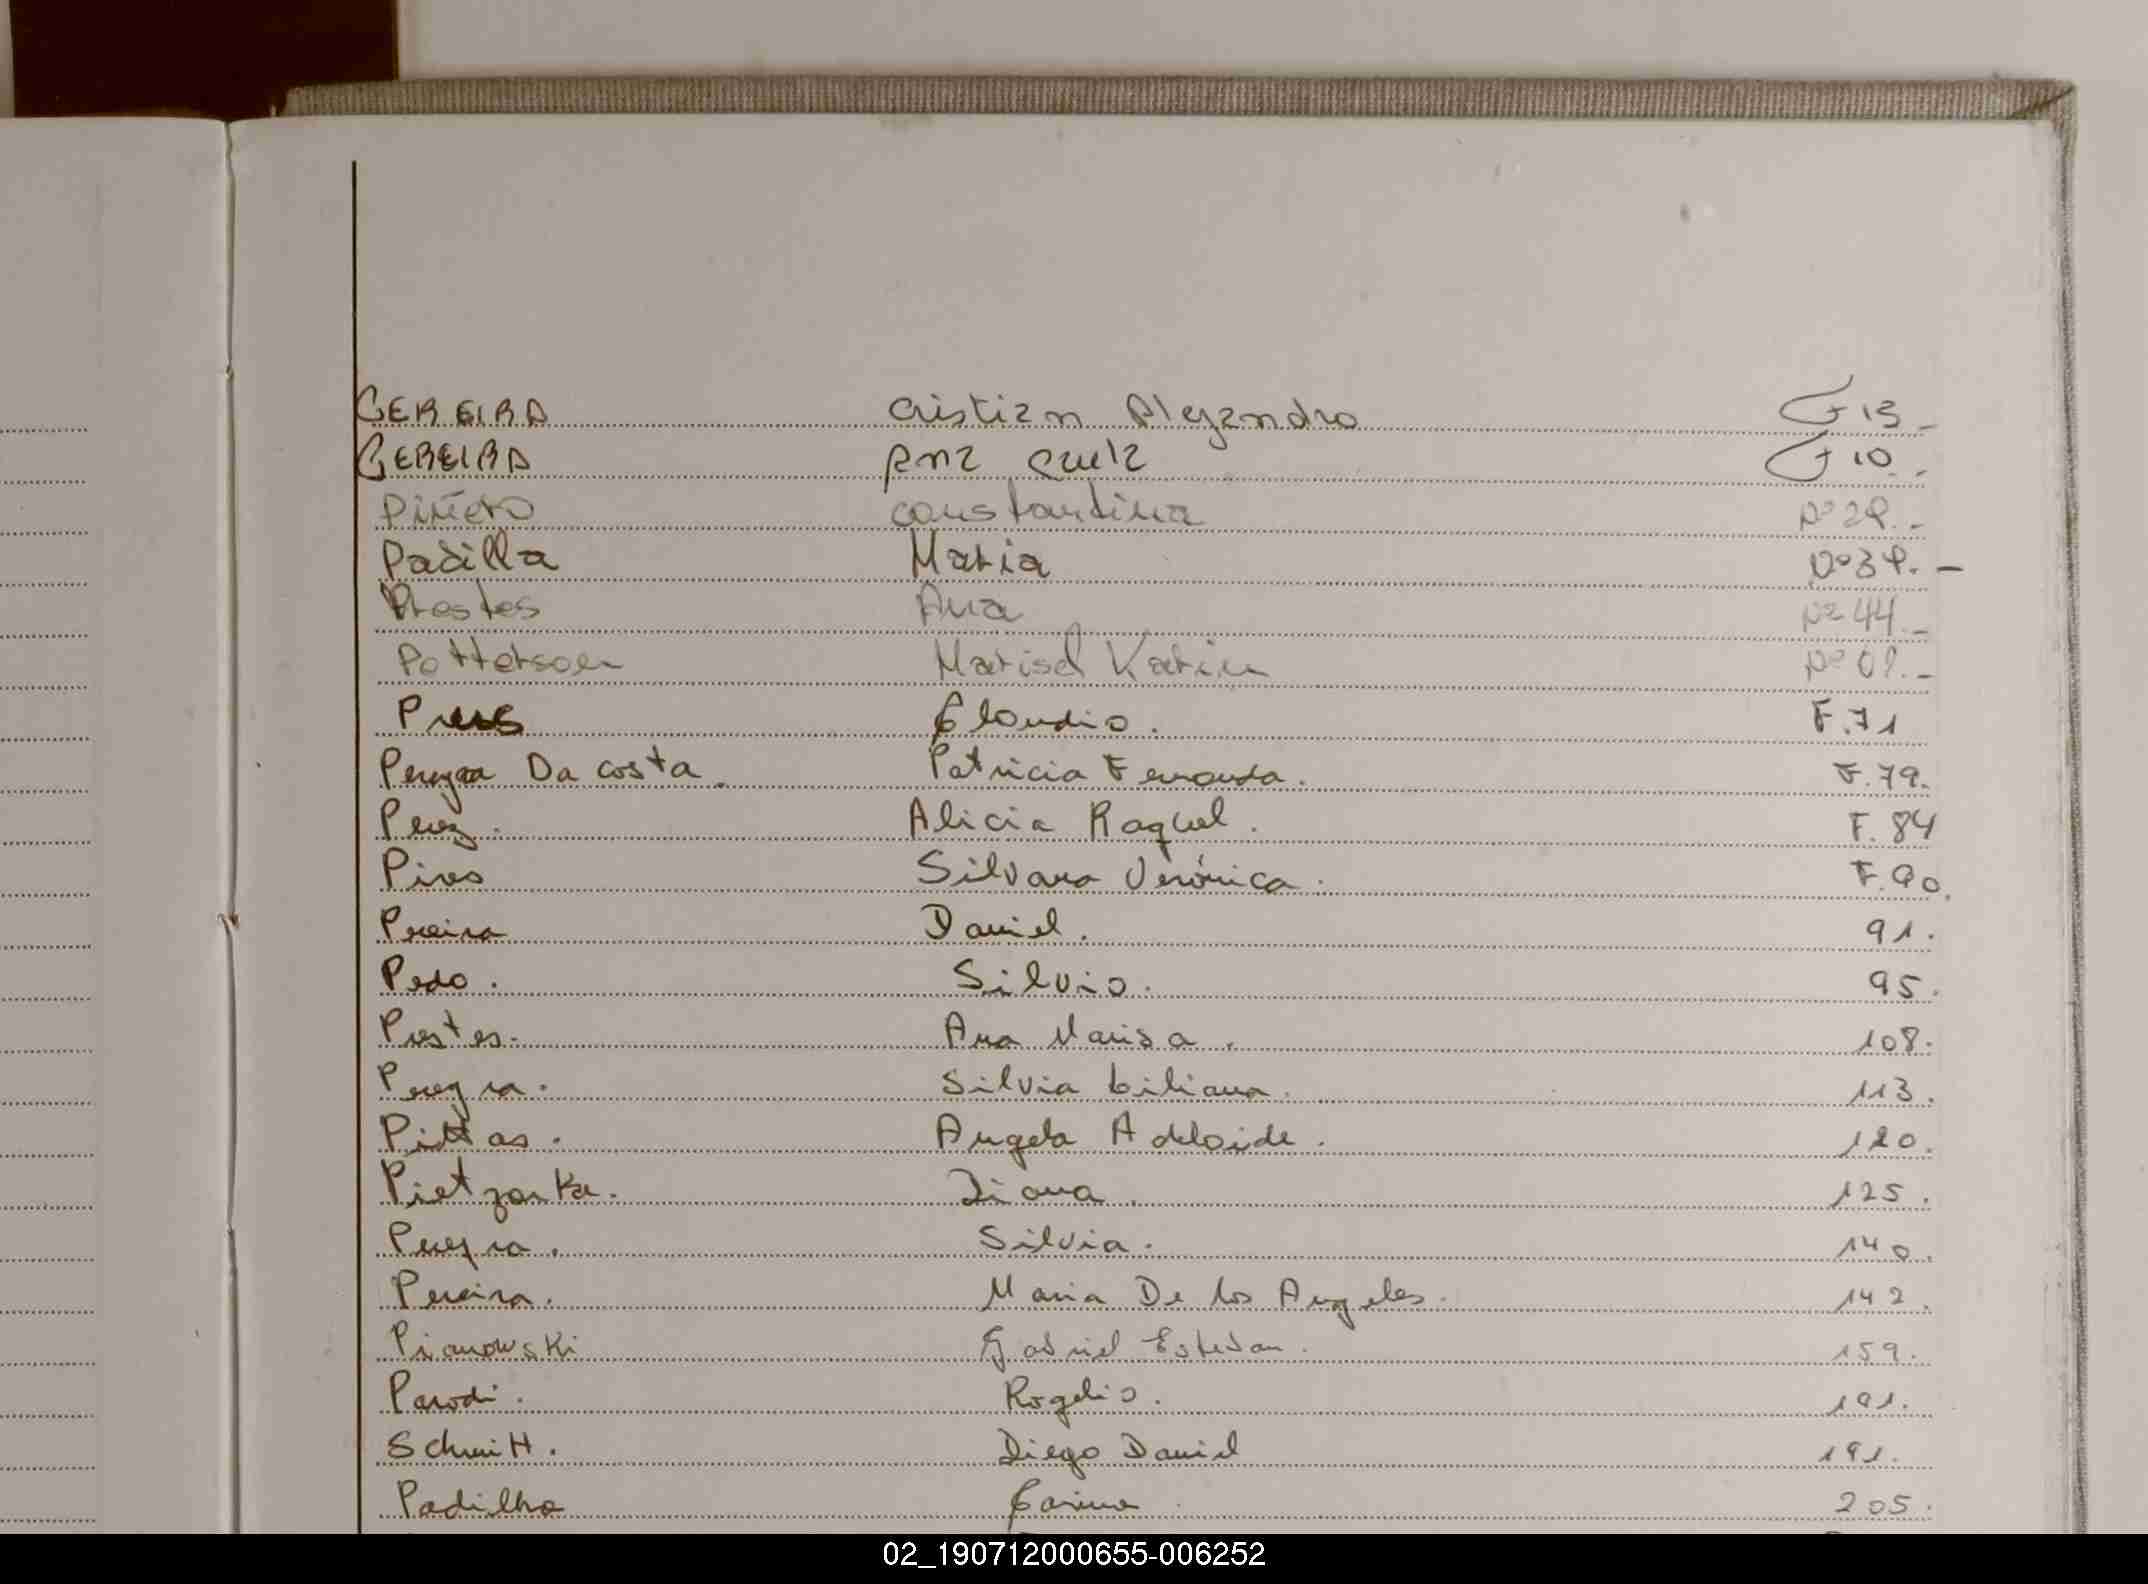 PEREIRA Cristian Alejandro F 13
PEREIRA Ana F 10
Piñero Constantina Nº 29.-
Padilla Maria Nº 39.-
Prestes Ana Nº 44.-
Pottersoen Marisel Karin Nº
Preus Claudio. F.71
Pereyra Da costa. Patricia Fernanda. F.79.
Perez. Alicia Raquel. F. 84
Pires Silvana Verónica. F.90.
Pereira Daniel. 91.
Pedo. Silvio. 95.
Prestes. Ana Marisa. 108.
Pereyra. Silvia Liliana. 113.
Pittas. Angela Adelaide. 120.
Pietzarka. Diana. 125.
Pereyra. Silvia. 140.
Pereira. Maria De los Angeles. 142.
Pianowski Gabriel Esteban. 159.
Parodi. Rogelio. 191.
Schmitt. Diego Daniel 191.
Padilha Carina. 205.
02_190712000655-006252